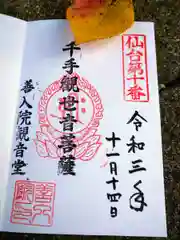 仙台第十番
令和三年
十一月十四日
千手観世音菩薩
善入院観音堂